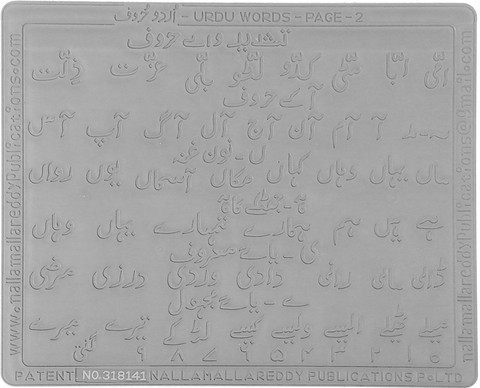 اُردو حروف - URDU WORDS - PAGE - 2
تشدید والے حروف
امّی ابّا مٹّی کدّو لٹّو بلّی عزّت ذلّت
آ کے حروف
آ آم آن آج آل آگ آپ آس
ں - نون غنہ
ماں یہاں وہاں کہاں مکاں آسماں یوں رواں
ہیں ہم ہمارے تمہارے یہاں وہاں
ی - یائے معروف
رانی دادی وردی درزی مرضی
ے - یائے مجہول
میلے ٹھیلے ایسے ویسے کیسے لڑکے تیرے میرے
۰ ۱ ۲ ۳ ۴ ۵ ۶ ۷ ۸ ۹ گنتی
PATENT NO.318141 NALLAMALLAREDDY PUBLICATIONS Pvt LTD
www.nallamallareddyPublications.com
nallamallareddyPublications@Gmail.com